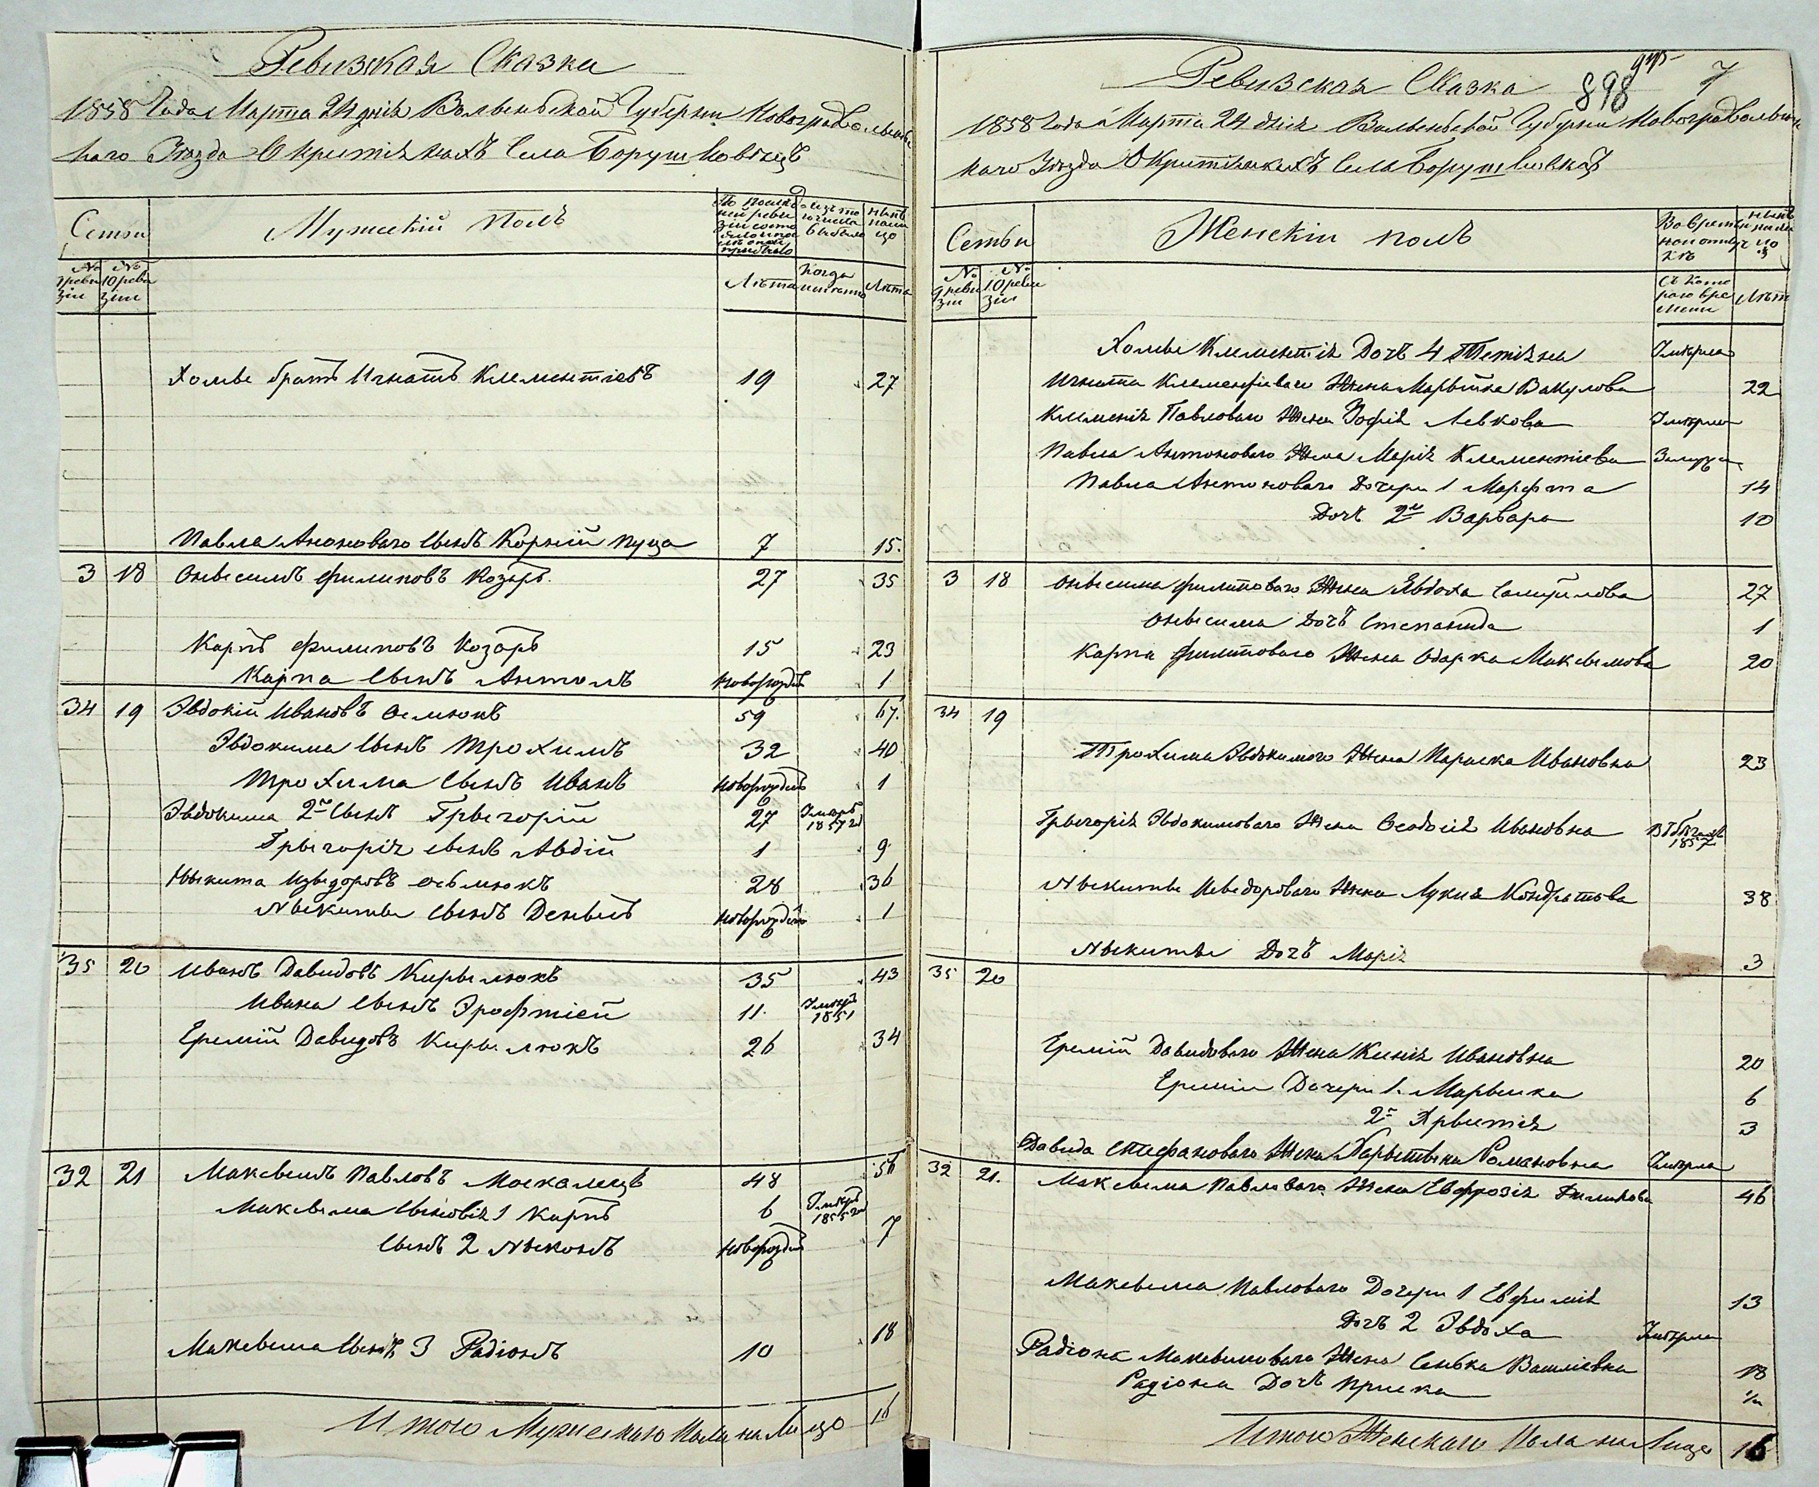 Ревизкая Сказка
1858 Года Марта 24 дня Волынской Губернии Новоградволын
каго Уезда О крестянахъ Села Борушковецъ
Семьи
Мужскій полъ
По послед
ней реви
зіи состо
Изъ то
го числа
выбыло
нынѣ
нали
цо
№
ревизіи
№
10 ревизіи
Лѣта
Когда
именно
Лѣта
Хомы братъ Игнатъ Клементіевъ 19 27
Павла Аноноваго Сынъ Корній Пуца 7 15.
3 18 Онысимъ Филиповъ Козаръ. 27 35
Карпъ Филиповъ Козаръ 15 23
Карпа Сынъ Антонъ новорожд 1
34 19 Эвдокій Ивановъ Ослюкъ 59 67.
Эвдокима Сынъ Трохимъ 32 40
Трохима Сынъ Иванъ новорожд 1
Эвдокима 2й Сынъ Грыгорій 27 Умеръ 1857 г
Грыгорія Сынъ Авдій 1 9
Ныкита Изыдоровъ Ослюкъ 28 36
Ныкиты Сынъ Денысъ новорожд 1
35 20 Иванъ Давидовъ Кирылюкъ 35 43
Ивана Сынъ Эрофтіей 11. Умеръ 1851
Еремій Давидовъ Кирылюкъ 26 34
32 21 Максымъ Павловъ Москалецъ 48 56
Максыма Сыновія 1 Карпъ 6 Умеръ 1855 г
Сынъ 2 Ныконъ новорожд 7
Максыма Сынъ 3 Радіонъ 10 18
Итого Мужескаго Пола на Лицо 16
Ревизская Сказка 898 7
1858 Года Марта 24 дня Волынской Губерніи Новоградволын
каго Уезда О Крестянахъ Села Борушковецъ
Семьи
Женскій полъ
Во времен
ной отлуч
кѣ
нынѣ
нали
цо
№
9 ревизіи
№
10 ревизіи
Съ кото
раго вре
мени
Лѣт
Хомы Клементія Дочь 4 Тетяна Умерла
Игната Клементіеваго Жена Марыйна Вакулова 22
Клименія Павловаго Жена Зофія Левкова Умерла
Павла Антоноваго Жена Марія Клементіева Замуж
Павла Антоноваго Дочери 1 Марфта 14
Дочь 2я Варвара 10
3 18 Онысима Филиповаго Жена Явдоха Самуилова 27
Онысима Дочь Степанида 1
Карпа Филиповаго Жена Одарка Максымова 20
34 19
Трохима Эвдокимого Жена Параска Ивановна 23
Грыгорія Эвдокимоваго Жена Феодосія Ивановна 1857
Ныкиты Исыдороваго Жена Лукия Кондратова 38
Ныкиты Дочь Марія 3
35 20
Еремій Давидоваго Жена Ксенія Ивановна 20
Еремии Дочери 1. Марынка 6
2я Хрыстія 3
Давида Стефановаго Жена Харытына Романовна Умерла
32 21. Максыма Павловаго Жена Евфрозія Филипова 46
Максыма Павловаго Дочери 1 Евфимія 13
Дочь 2 Эвдоха Умерла
Радіона Максымоваго Жена Сенька Василіевна 18
Радіона Дочь Приска ½
Итого Женскаго Пола на Лицо 16